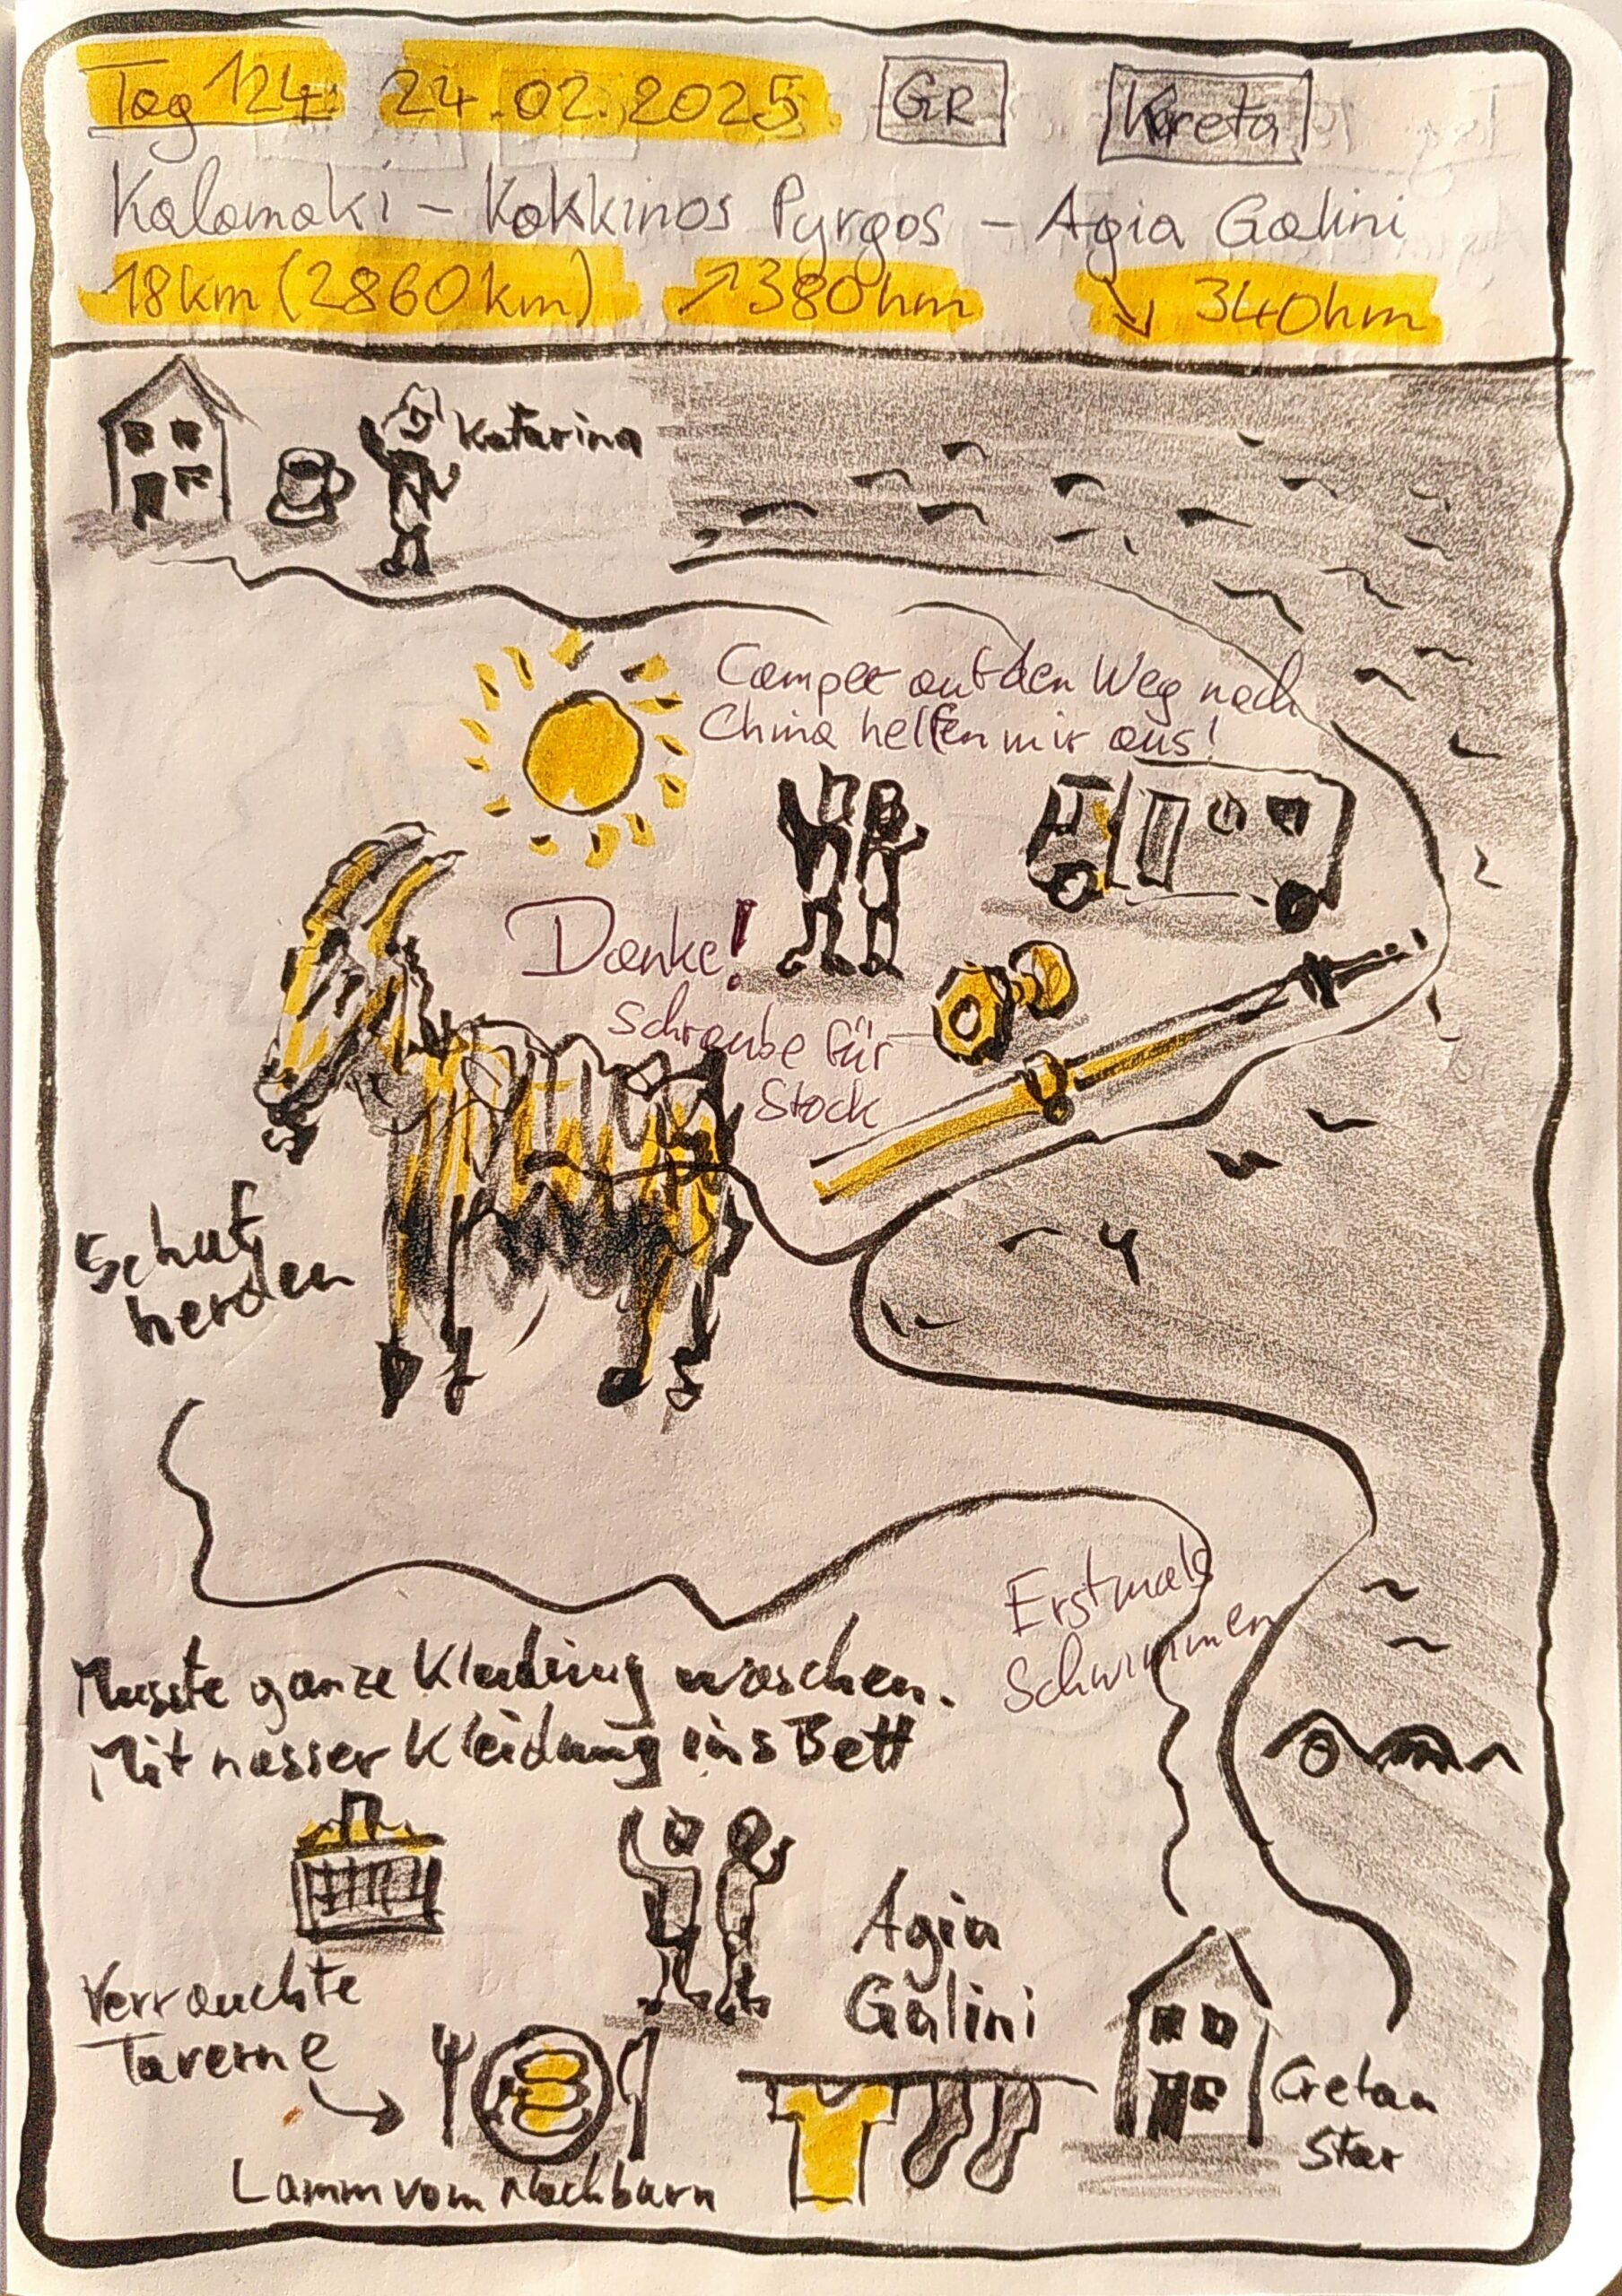 Tag 124 24.02.2025 GR Kreta
Kalamaki - Kokkinos Pyrgos - Agia Galini
18km (2860km) ↗380hm ↘ 340hm
Katarina
Camper auf den Weg nach
China helfen mir aus!
Danke!
Schraube für
Stock
Schaf
herden
Erstmals
Schwimmen
Musste ganze Kleidung waschen.
Mit nasser Kleidung ins Bett
Agia
Galini
Verrauchte
Taverne
Cretan
Star
Lamm vom Nachbarn